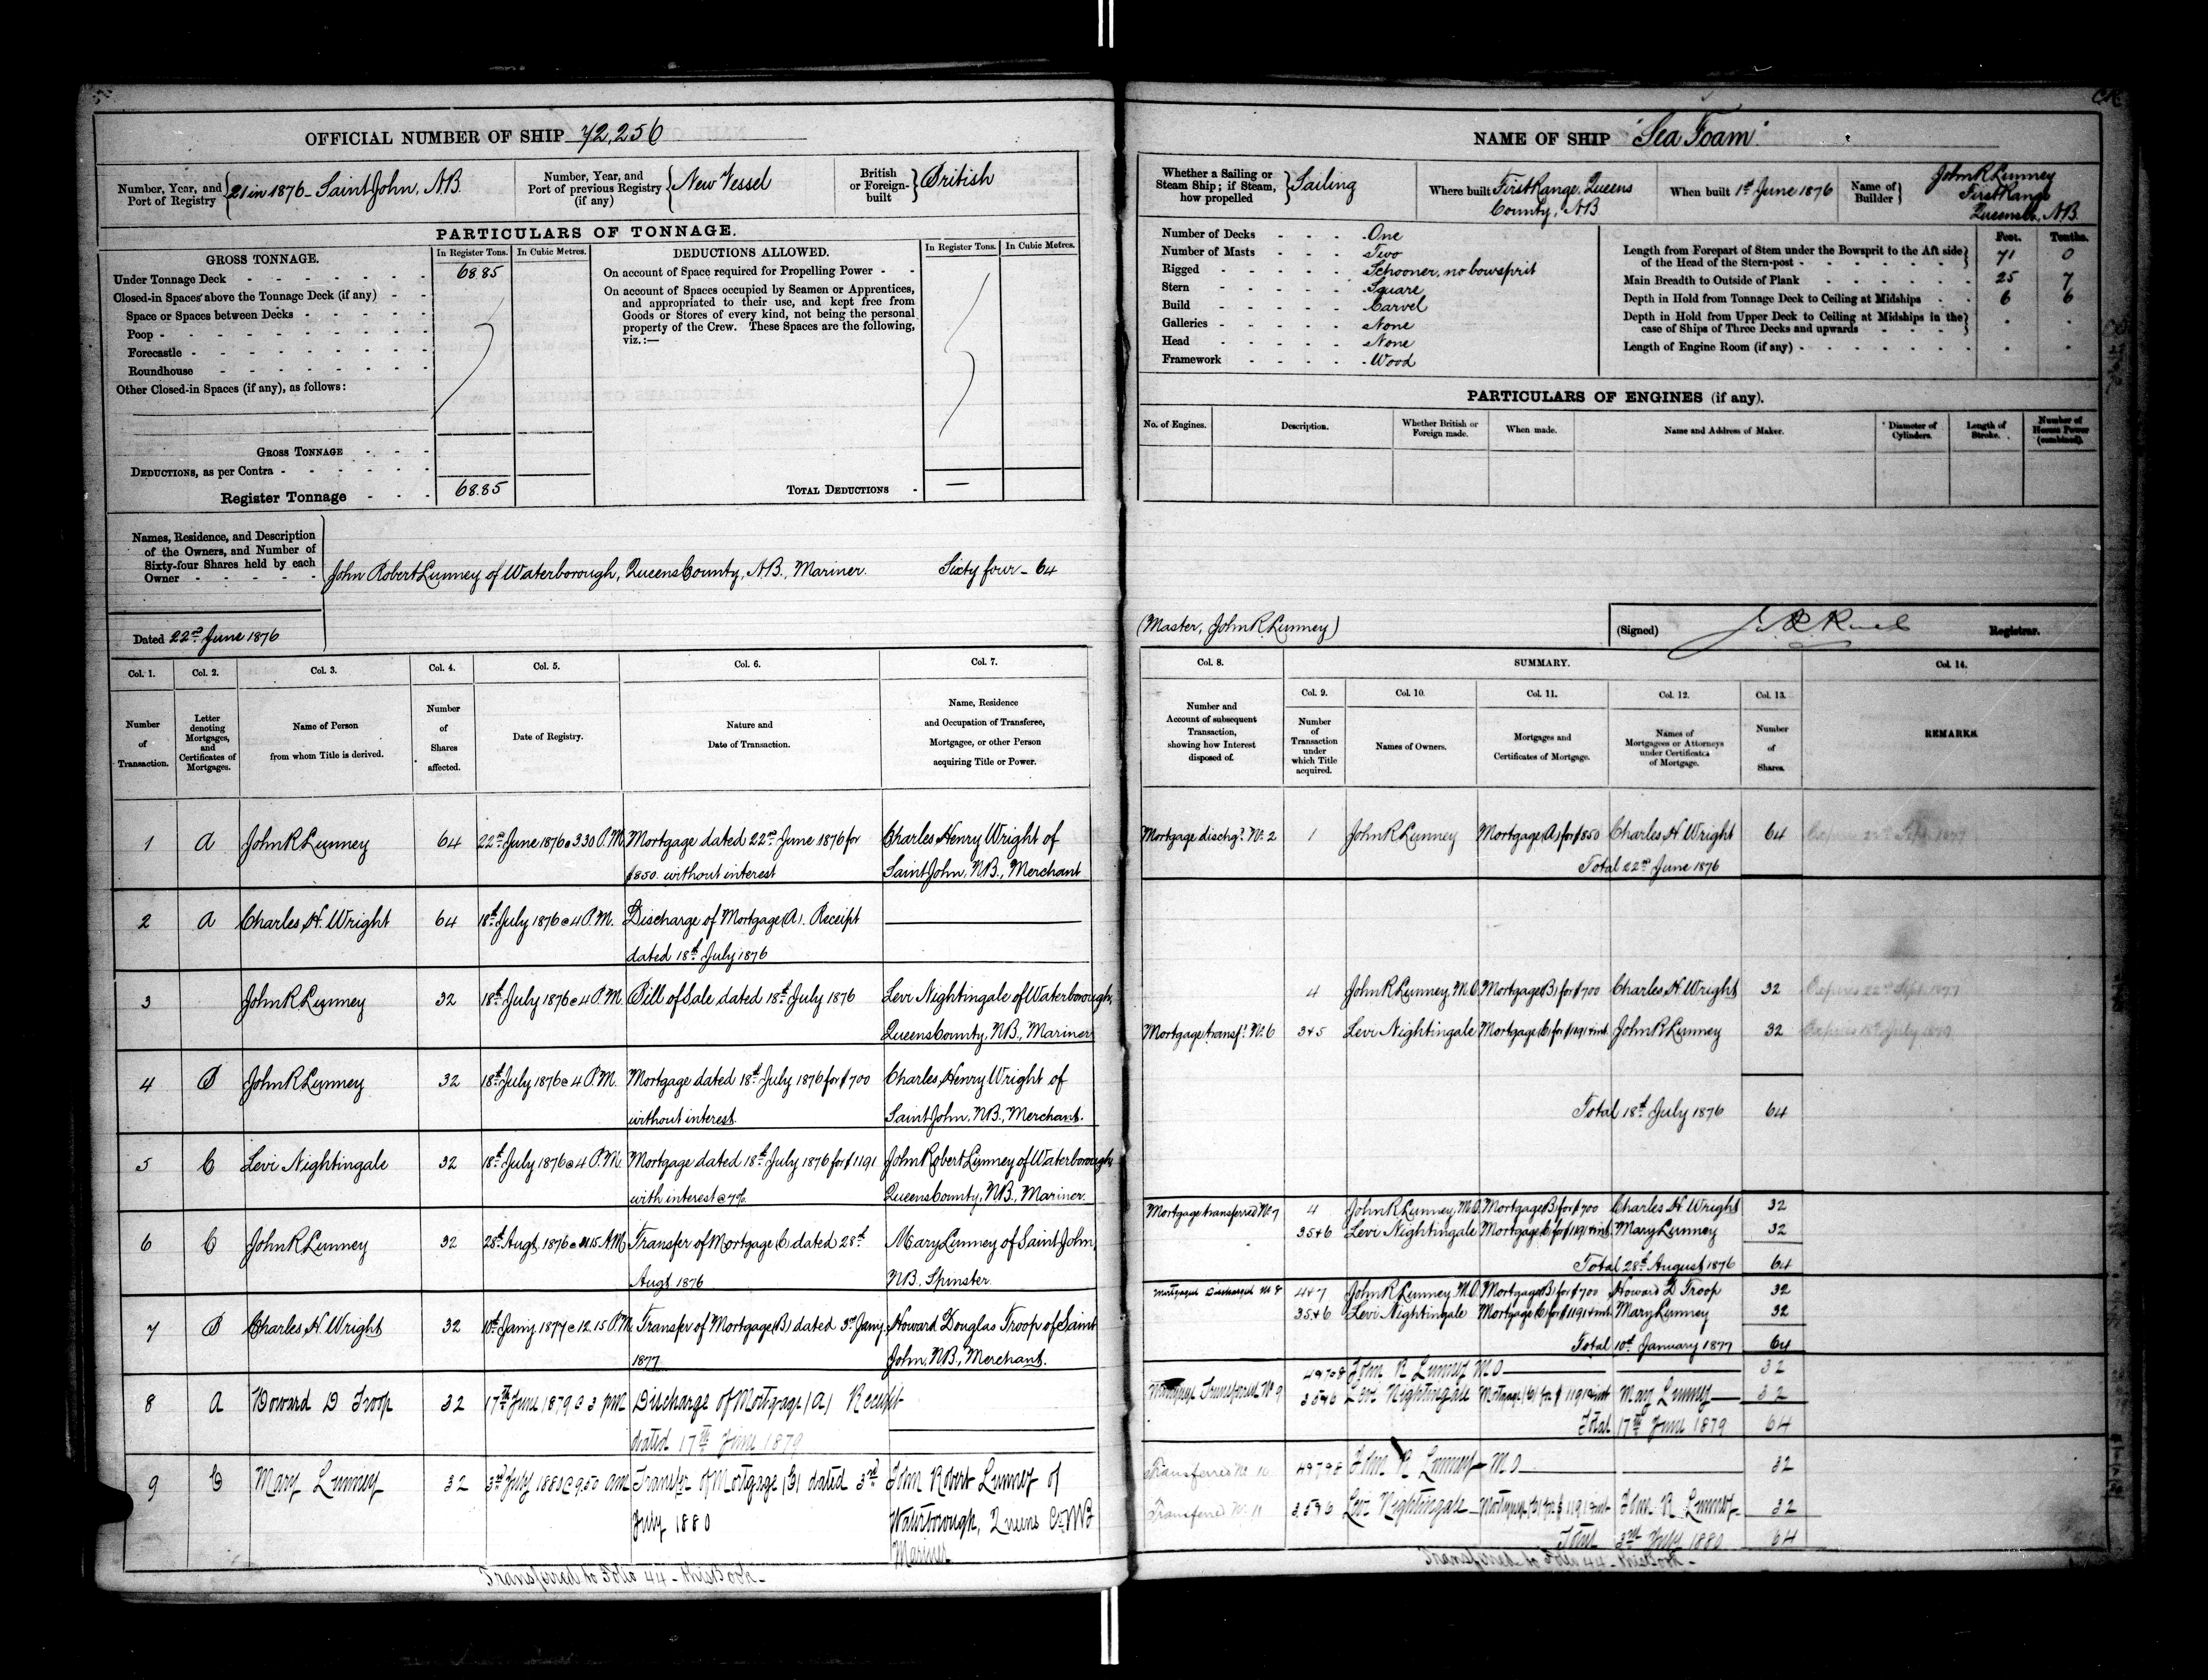 OFFICIAL NUMBER OF SHIP 72,256
Number, Year, and Port of Registry } 21 in 1876 - Saint John, N.B.
Number, Year, and Port of previous Registry (if any) } New Vessel
British or Foreign-built } British
PARTICULARS OF TONNAGE.
GROSS TONNAGE. In Register Tons. In Cubic Metres.
Under Tonnage Deck 68.85
Closed-in Spaces above the Tonnage Deck (if any)
Space or Spaces between Decks
Poop
Forecastle
Roundhouse
Other Closed-in Spaces (if any), as follows:
GROSS TONNAGE
DEDUCTIONS, as per Contra
Register Tonnage 68.85
DEDUCTIONS ALLOWED. In Register Tons. In Cubic Metres.
On account of Space required for Propelling Power
On account of Spaces occupied by Seamen or Apprentices,
and appropriated to their use, and kept free from
Goods or Stores of every kind, not being the personal
property of the Crew. These Spaces are the following,
viz.:—
TOTAL DEDUCTIONS —
Names, Residence, and Description
of the Owners, and Number of
Sixty-four Shares held by each
Owner
John Robert Lunney of Waterborough, Queens County, N.B., Mariner. Sixty four - 64
Dated 22nd June 1876
Col. 1. Col. 2. Col. 3. Col. 4. Col. 5. Col. 6. Col. 7.
Number of Transaction.
Letter denoting Mortgages, and Certificates of Mortgages.
Name of Person from whom Title is derived.
Number of Shares affected.
Date of Registry.
Nature and Date of Transaction.
Name, Residence and Occupation of Transferee, Mortgagee, or other Person acquiring Title or Power.
1 A John R Lunney 64 22nd June 1876 @ 3.30 P.M. Mortgage dated 22nd June 1876 for Charles Henry Wright of
$850. without interest Saint John, N.B., Merchant
2 A Charles H. Wright 64 18th July 1876 @ 4 P.M. Discharge of Mortgage (A). Receipt
dated 18th July 1876
3 John R Lunney 32 18th July 1876 @ 4 P.M. Bill of Sale dated 18th July 1876 Levi Nightingale of Waterborough,
Queens County, N.B., Mariner
4 B John R Lunney 32 18th July 1876 @ 4 P.M. Mortgage dated 18th July 1876 for $700 Charles Henry Wright of
without interest. Saint John, N.B., Merchant.
5 C Levi Nightingale 32 18th July 1876 @ 4 P.M. Mortgage dated 18th July 1876 for $1191 John Robert Lunney of Waterborough
with interest @ 7%. Queens County, N.B., Mariner.
6 C John R Lunney 32 28th Augt. 1876 @ 11.15 A.M. Transfer of Mortgage (C) dated 28th Mary Lunney of Saint John,
Augt 1876 N.B. Spinster.
7 B Charles H. Wright 32 10th Jany 1877 @ 12.15 P.M. Transfer of Mortgage (B) dated 3rd Jany. Howard Douglas Troop of Saint
1877. John, N.B., Merchant.
8 A Howard D Troop 32 17th June 1879 @ 3 PM Discharge of Mortgage (A) Receipt
dated 17th June 1879
9 C Mary Lunney 32 3rd July 1880 @ 9.50 am Transfer of Mortgage (C) dated 3rd John Robert Lunney of
July 1880 Waterborough, Queens Co NB
Mariner
Transferred to Folio 44 - this Book -
NAME OF SHIP "Sea Foam"
Whether a Sailing or Steam Ship; if Steam, how propelled } Sailing
Where built First Range, Queens County, N.B.
When built 1st June 1876
Name of Builder } John R Lunney
First Range
Queens Co., N.B.
Number of Decks One
Number of Masts Two
Rigged Schooner, no bowsprit
Stern Square
Build Carvel
Galleries None
Head None
Framework Wood
Feet. Tenths.
Length from Forepart of Stem under the Bowsprit to the Aft side of the Head of the Stern-post 71 0
Main Breadth to Outside of Plank 25 7
Depth in Hold from Tonnage Deck to Ceiling at Midships 6 6
Depth in Hold from Upper Deck to Ceiling at Midships in the case of Ships of Three Decks and upwards
Length of Engine Room (if any)
PARTICULARS OF ENGINES (if any).
No. of Engines. Description. Whether British or Foreign made. When made. Name and Address of Maker. Diameter of Cylinders. Length of Stroke. Number of Horses Power (combined).
(Master, John R Lunney)
(Signed) Registrar.
Col. 8. SUMMARY. Col. 14.
Col. 9. Col. 10. Col. 11. Col. 12. Col. 13.
Number and Account of subsequent Transaction, showing how Interest disposed of.
Number of Transaction under which Title acquired.
Names of Owners.
Mortgages and Certificates of Mortgage.
Names of Mortgagees or Attorneys under Certificate of Mortgage.
Number of Shares.
REMARKS.
Mortgage dischgd. No. 2 1 John R Lunney Mortgage (A) for $850 Charles H. Wright 64 Expires 22nd Sept. 1877
Total 22nd June 1876
4 John R Lunney, M.O. Mortgage (B) for $700 Charles H. Wright 32 Expires 22nd Sept. 1877
Mortgage transfd. No. 6 3 & 5 Levi Nightingale Mortgage (C) for $1191 & int. John R Lunney 32 Expires 18th July 1879
Total 18th July 1876 64
Mortgage transferred No. 7 4 John R Lunney, M.O. Mortgage (B) for $700 Charles H. Wright 32
3 5 & 6 Levi Nightingale Mortgage (C) for $1191 & int Mary Lunney 32
Total 28th August 1876 64
Mortgage Discharged No 8 4 & 7 John R Lunney, M.O. Mortgage (B) for $700 Howard D Troop 32
3 5 & 6 Levi Nightingale Mortgage (C) for $1191 & int Mary Lunney 32
Total 10th January 1877 64
4 & 7 & 8 John R Lunney M O 32
Mortgage Transferred No 9 3 5 & 6 Levi Nightingale Mortgage (C) for $1191 & int Mary Lunney 32
Total 17th June 1879 64
Transferred No. 10 4 & 7 & 8 John R Lunney M O 32
Transferred No. 11 3 5 & 6 Levi Nightingale Mortgage (C) for $1191 & int John R Lunney 32
Total 3rd July 1880 64
Transferred to Folio 44 - this Book -